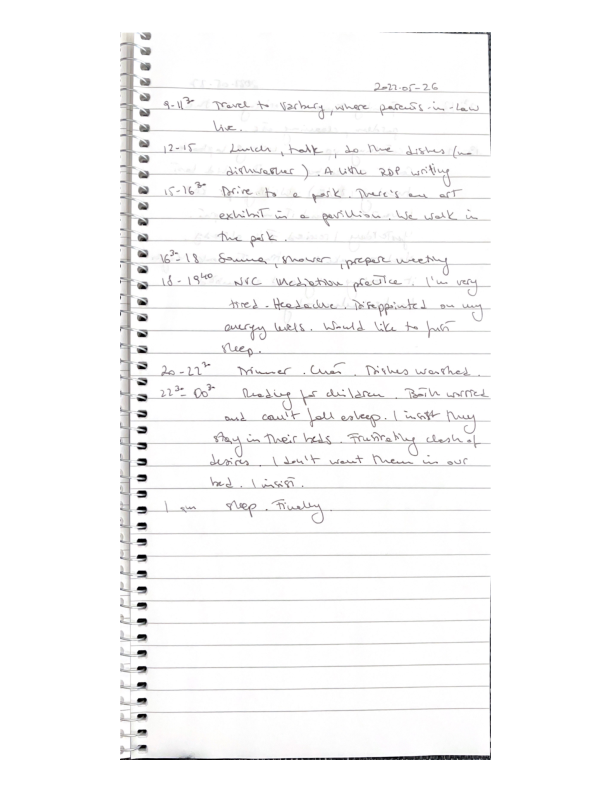 2022-05-26
9-11³⁰ Travel to Varberg, where parents-in-law
live.
12-15 Lunch, talk, do the dishes (no
dishwasher). A little RDP writing
15-16³⁰ Drive to a park. There's an art
exhibit in a pavillion. We walk in
the park.
16³⁰-18 Sauna, shower, prepare meeting
18-19⁴⁰ NVC Mediation practice. I'm very
tired. Headache. Disappointed on my
energy levels. Would like to just
sleep.
20-22³⁰ Dinner. Chat. Dishes washed.
22³⁰-00³⁰ Reading for children. Both worried
and can't fall asleep. I insist they
stay in their beds. Frustrating clash of
desires. I don't want them in our
bed. I insist.
1 am sleep. Finally.